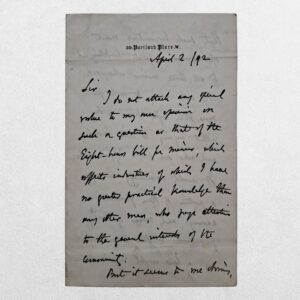 20. Portland Place. W.
April 2/92
Sir
I do not attach any special
value to my own opinion in
such a question as that of the
Eight-hours bill for miners, which
affects industries of which I have
no greater practical knowledge than
any other man, who pays attention
to the general interests of the
community.
But it seems to me